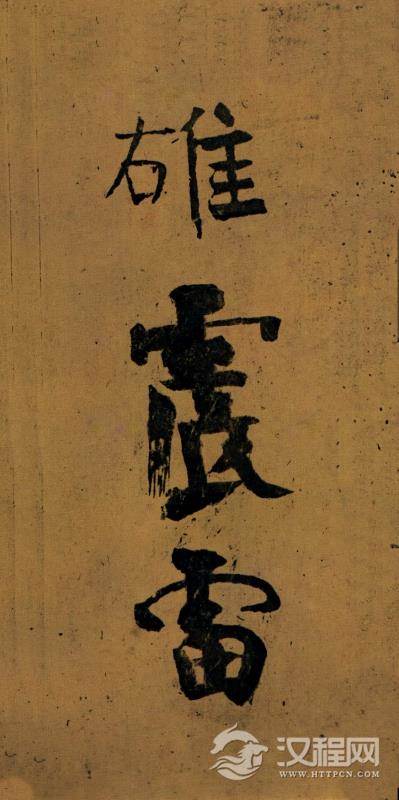 雄震雷
汉程网
WWW.HTTPCN.COM